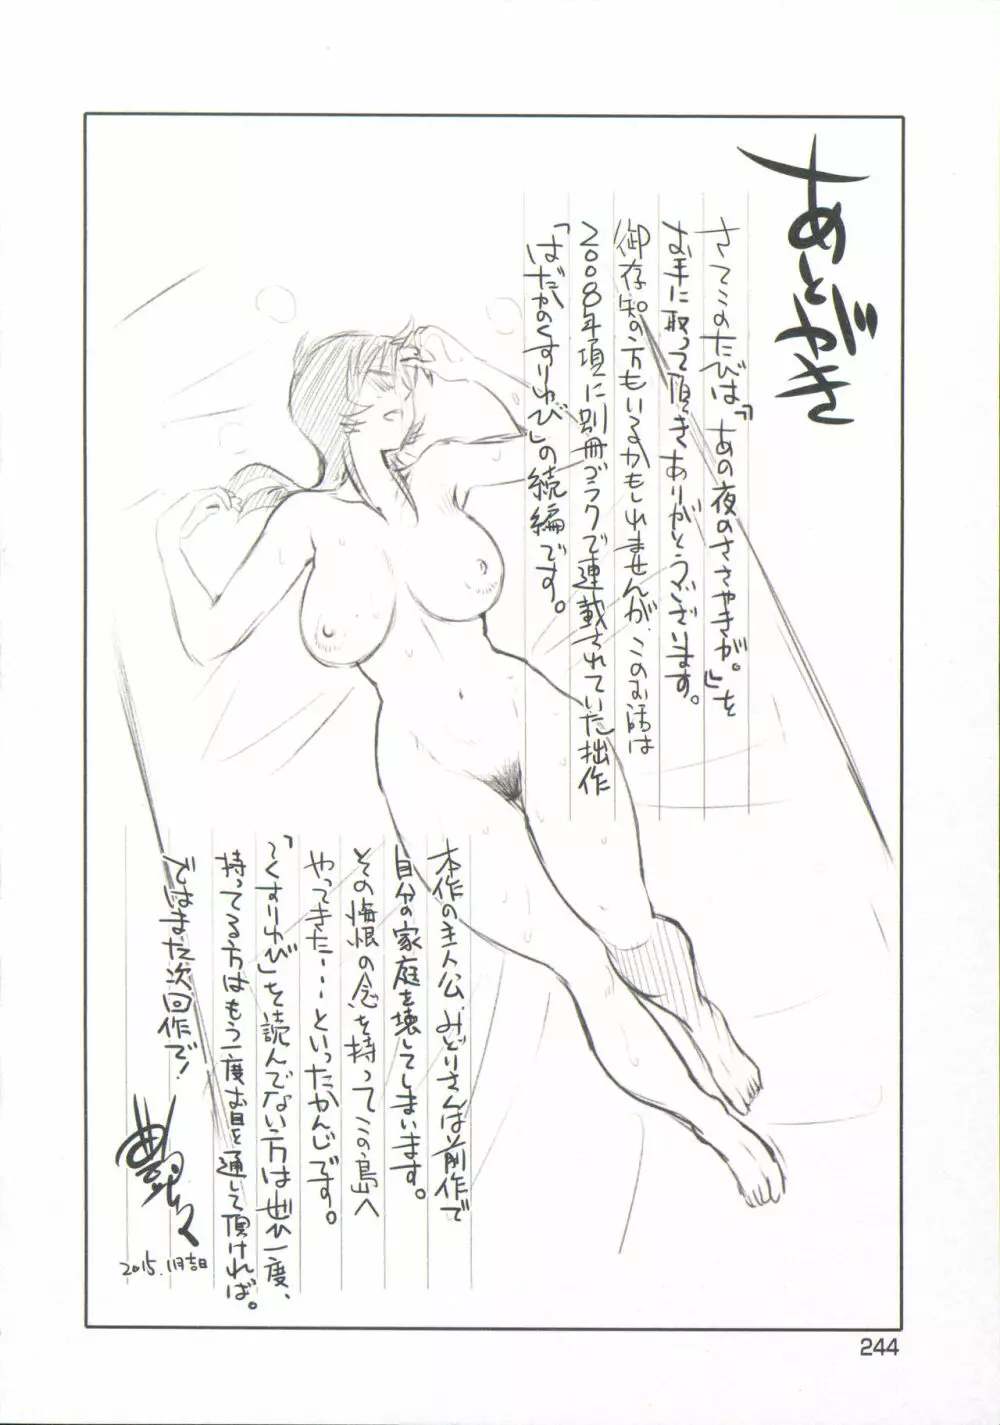 あとがき
さてこのたびは「あの夜のささやきが。」を
お手に取って頂きありがとうございます。
御存知の方もいるかもしれませんが、このお話は
2008年項に別冊ゴラクで連載されていた拙作
「はだかのくすりゆび」の続編です。
本作の主人公、みどりさんは前作で
自分の家庭を壊してしまいます。
その悔恨の念を持ってこの島へ
やってきた・・・・といったかんじです。
「〜くすりゆび」を読んでない方は是ひ一度、
持ってる方はもう一度お目を通して頂ければ。
ではまた次回作で！
艶々
2015.11月吉日
244